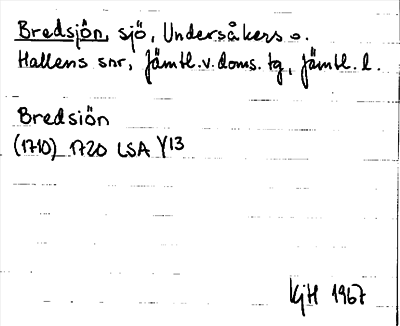 Bredsjön, sjö, Undersåkers o.
Hallens snr, Jämtl. v. doms. tg, Jämtl. l.
Bredsiön
(1710) 1720 LSA Y13
KjH 1967